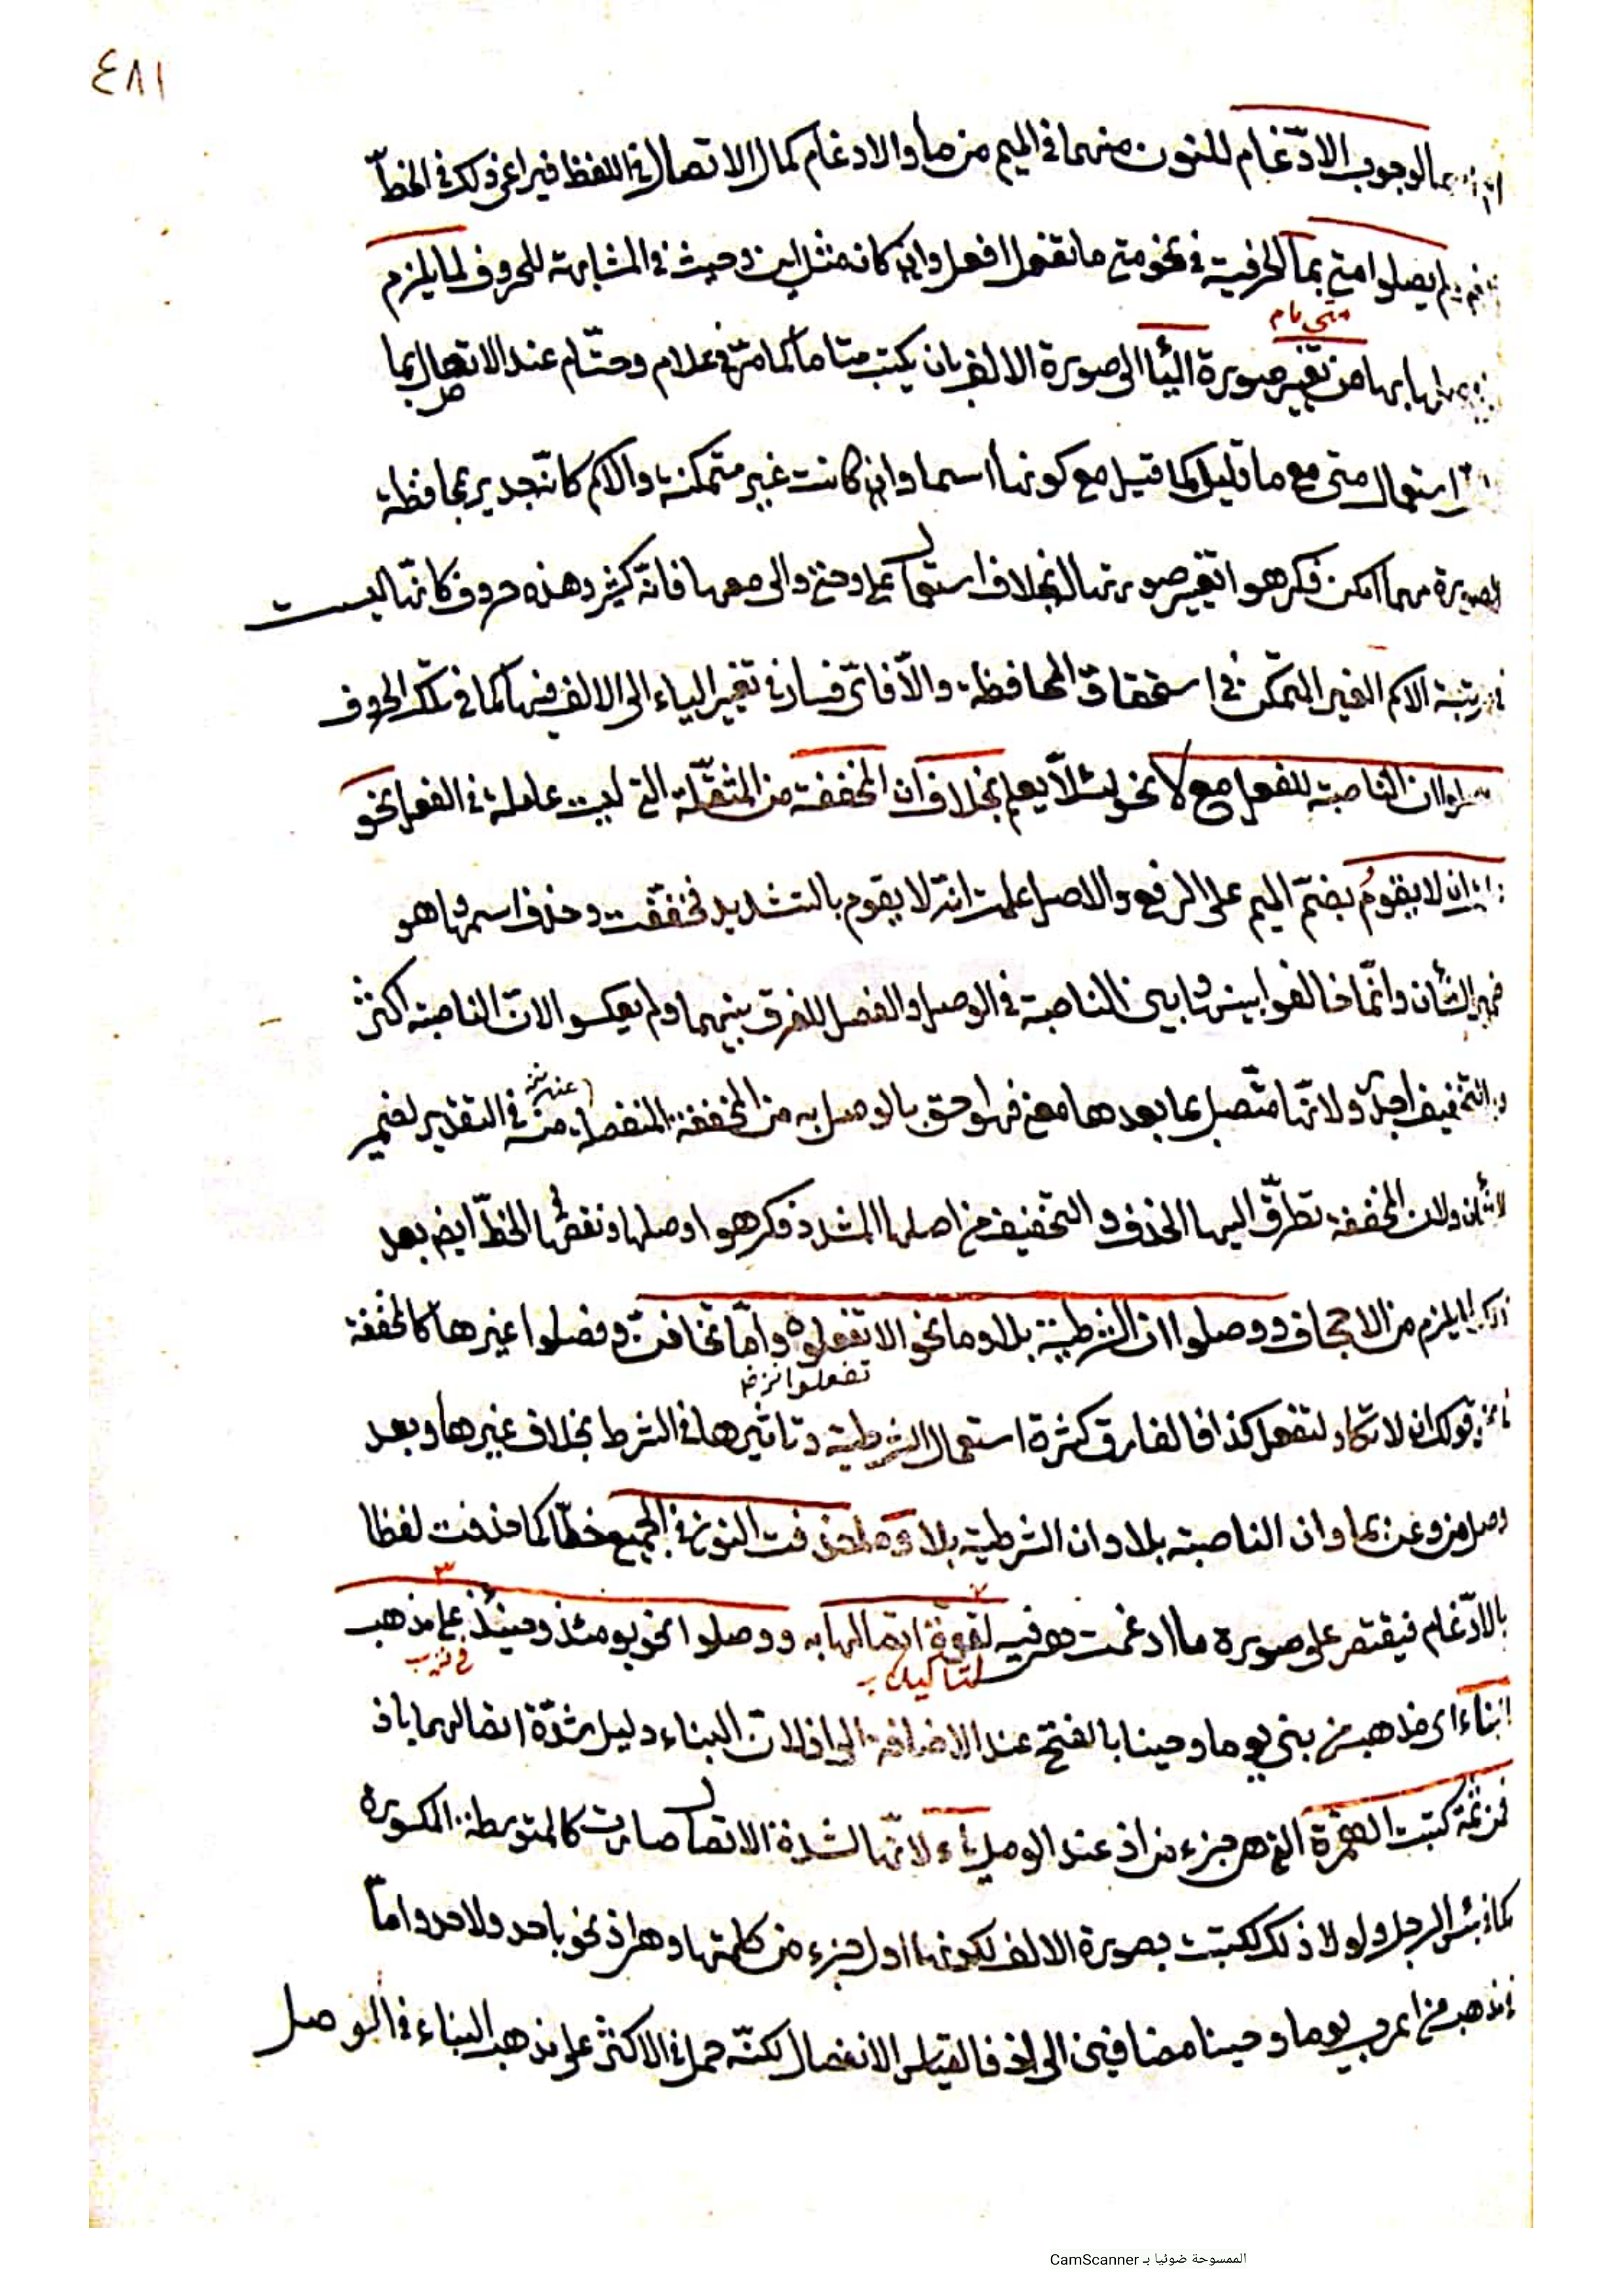 ٤٨١
لوجوب الادّغام للنون منهما فى الميم من ما والادغام كمال الاتصال فى اللفظ فيراعى ذلك فى الخطّ
لم يصلوا متى بما الحرفية فى نحو متى ما تفعل افعل وان كانه مثل اين وحيث فى المشابهة للحروف لما يلزم
متى نام
من تغيير صورة اليا الى صورة الالف بان يكتب متا ما كما مرّ فى علام وحتّام عند الاتصال بما
استعمال متى مع ما قليل كما قيل مع كونها اسما وان كانت غير متمكنة والاسم كانّه جدير بمحافظة
الصورة مهما امكن فكرهوا تغيير صورتها بخلاف استعمال على وحتى والى معها فانّه كثير وهذه حروف كانّها ليست
رتبة الاسم الغير المتمكّن فى استحقاق المحافظة والّا فاىّ فساد فى تغيير الياء الى الالف فيها كما فى تلك الحروف
ان الناصبة للفعل مع لا نحو لئلّا يعلم بخلاف ان المخففة من المثقّلة التى ليست عاملة فى الفعل نحو
ان لا يقومُ بضمّ الميم على الرفع والاصل علمت انّه لا يقوم بالتشديد فخففّت وحذف اسمها وهو
ضمير الشأن وانّما خالفوا بينها وبين الناصبة فى الوصل والفصل للفرق بينهما ولم يعكسوا لانّ الناصبة اكثر
وبالتخفيف اجدر ولانّها متّصل بما بعدها معنى فهو احق بالوصل به من المخففة المنفصلة عنه فى التقدير لضمير
الشأن ولان المخففة تطرّق اليها الحذف والتخفيف من اصلها المشدد فكرهوا وصلها ونقصها الخطّ ايض بعد
ذلك لما يلزم من الاجحاف ووصلوا ان الشرطية بلا وما نحو الا تفعلوه وامّا تخافنّ وفصلوا غيرها كالمخففة
تفعلوا نزه
قولك ان لا تكاد لتفعل كذا فالفارق كثرة استعمال الشرطية وتاثيرها فى الشرط بخلاف غيرها وبعد
وصل من وعن بما وان الناصبة بلا وان الشرطية بلا وما حذفت النون فى الجميع خطّا كما حذفت لفظا
بالادّغام فيقتصر على صورة ما ادغمت هو فيه لقوة اتصالها به ووصلوا نحو يومئذ وحينئذ على مذهب
لتاكيد
البناء اى مذهب من بنى يوما وحينا بالفتح عند الاضافة الى اذ لان البناء دليل شدّة اتصالهما باذ
فمن ثمة كتبت الهمزة التى هى جزء من اذ عند الوصل ياء لانّها لشدة الاتصال صارت كالمتوسطة المكسورة
كما فى بئس الرجل ولولا ذلك لكتبت بصورة الالف لكونها اول جزء من كلمتها وهى اذ نحو باحد ولاحد وامّا
مذهب من اعرب يوما وحينا مضافين الى اذ فالقياس الانفصال لكنّه حمل فى الاكثر على مذهب البناء فى الوصل
الممسوحة ضوئيا بـ CamScanner